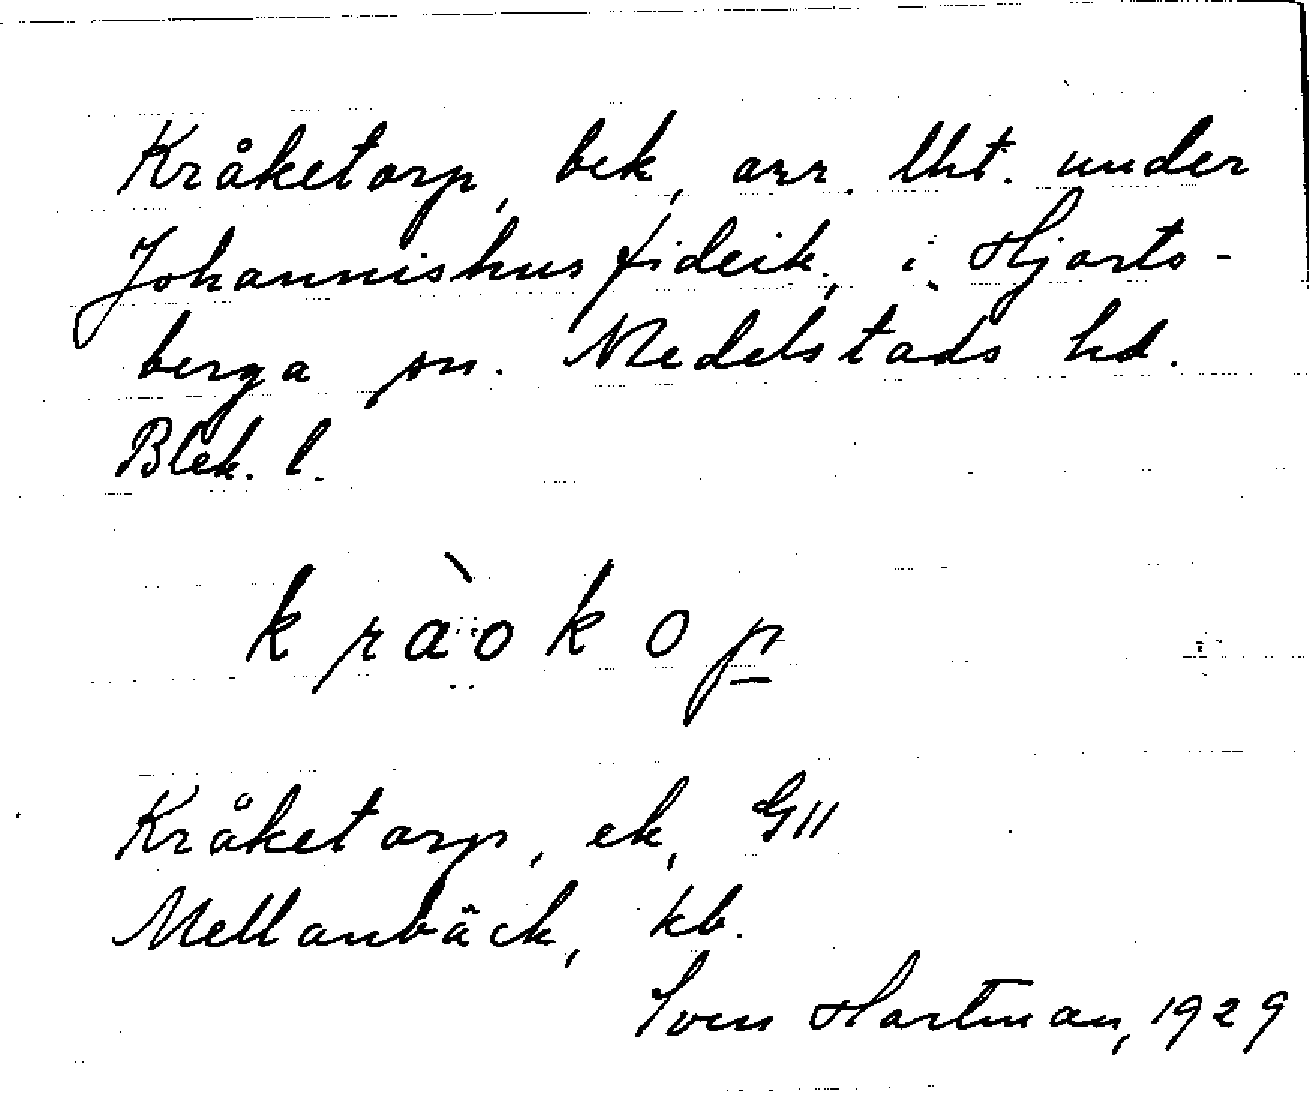 Kråketorp, bek, arr. lht. under
Johannishus fideik, i Hjorts-
berga sn. Medelstads hd.
Blek. l.
kràokop
Kråketorp, ek, GII
Mellanbäck, kb.
Sven Hartman, 1929